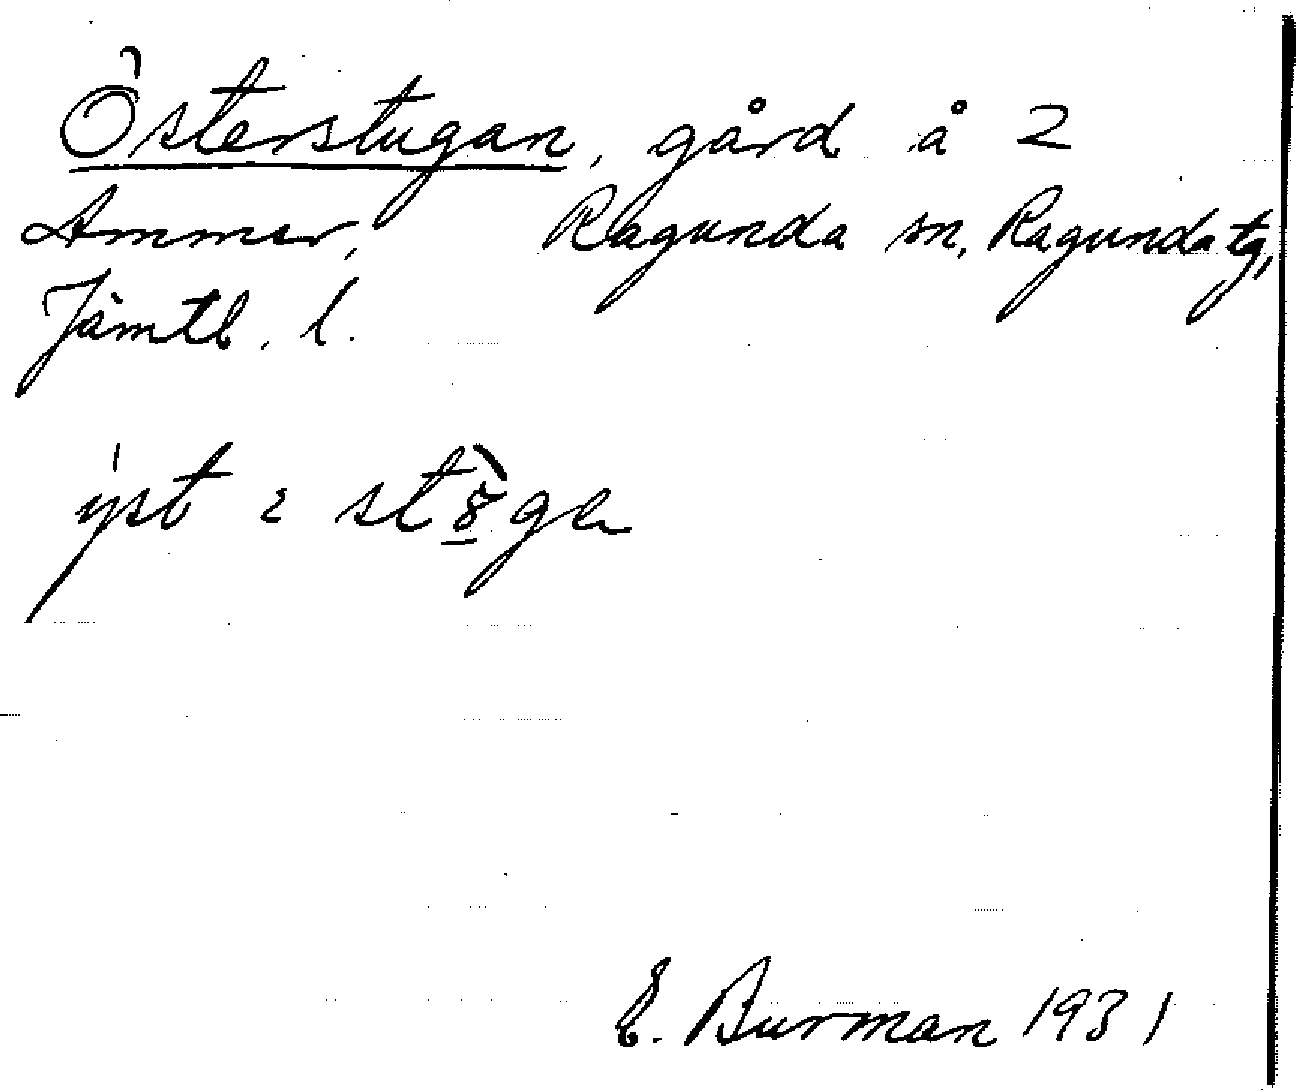 Österstugan, gård å 2
Ammer, Ragunda sn, Ragunda tg,
Jämtl. l.
E. Burman 1931